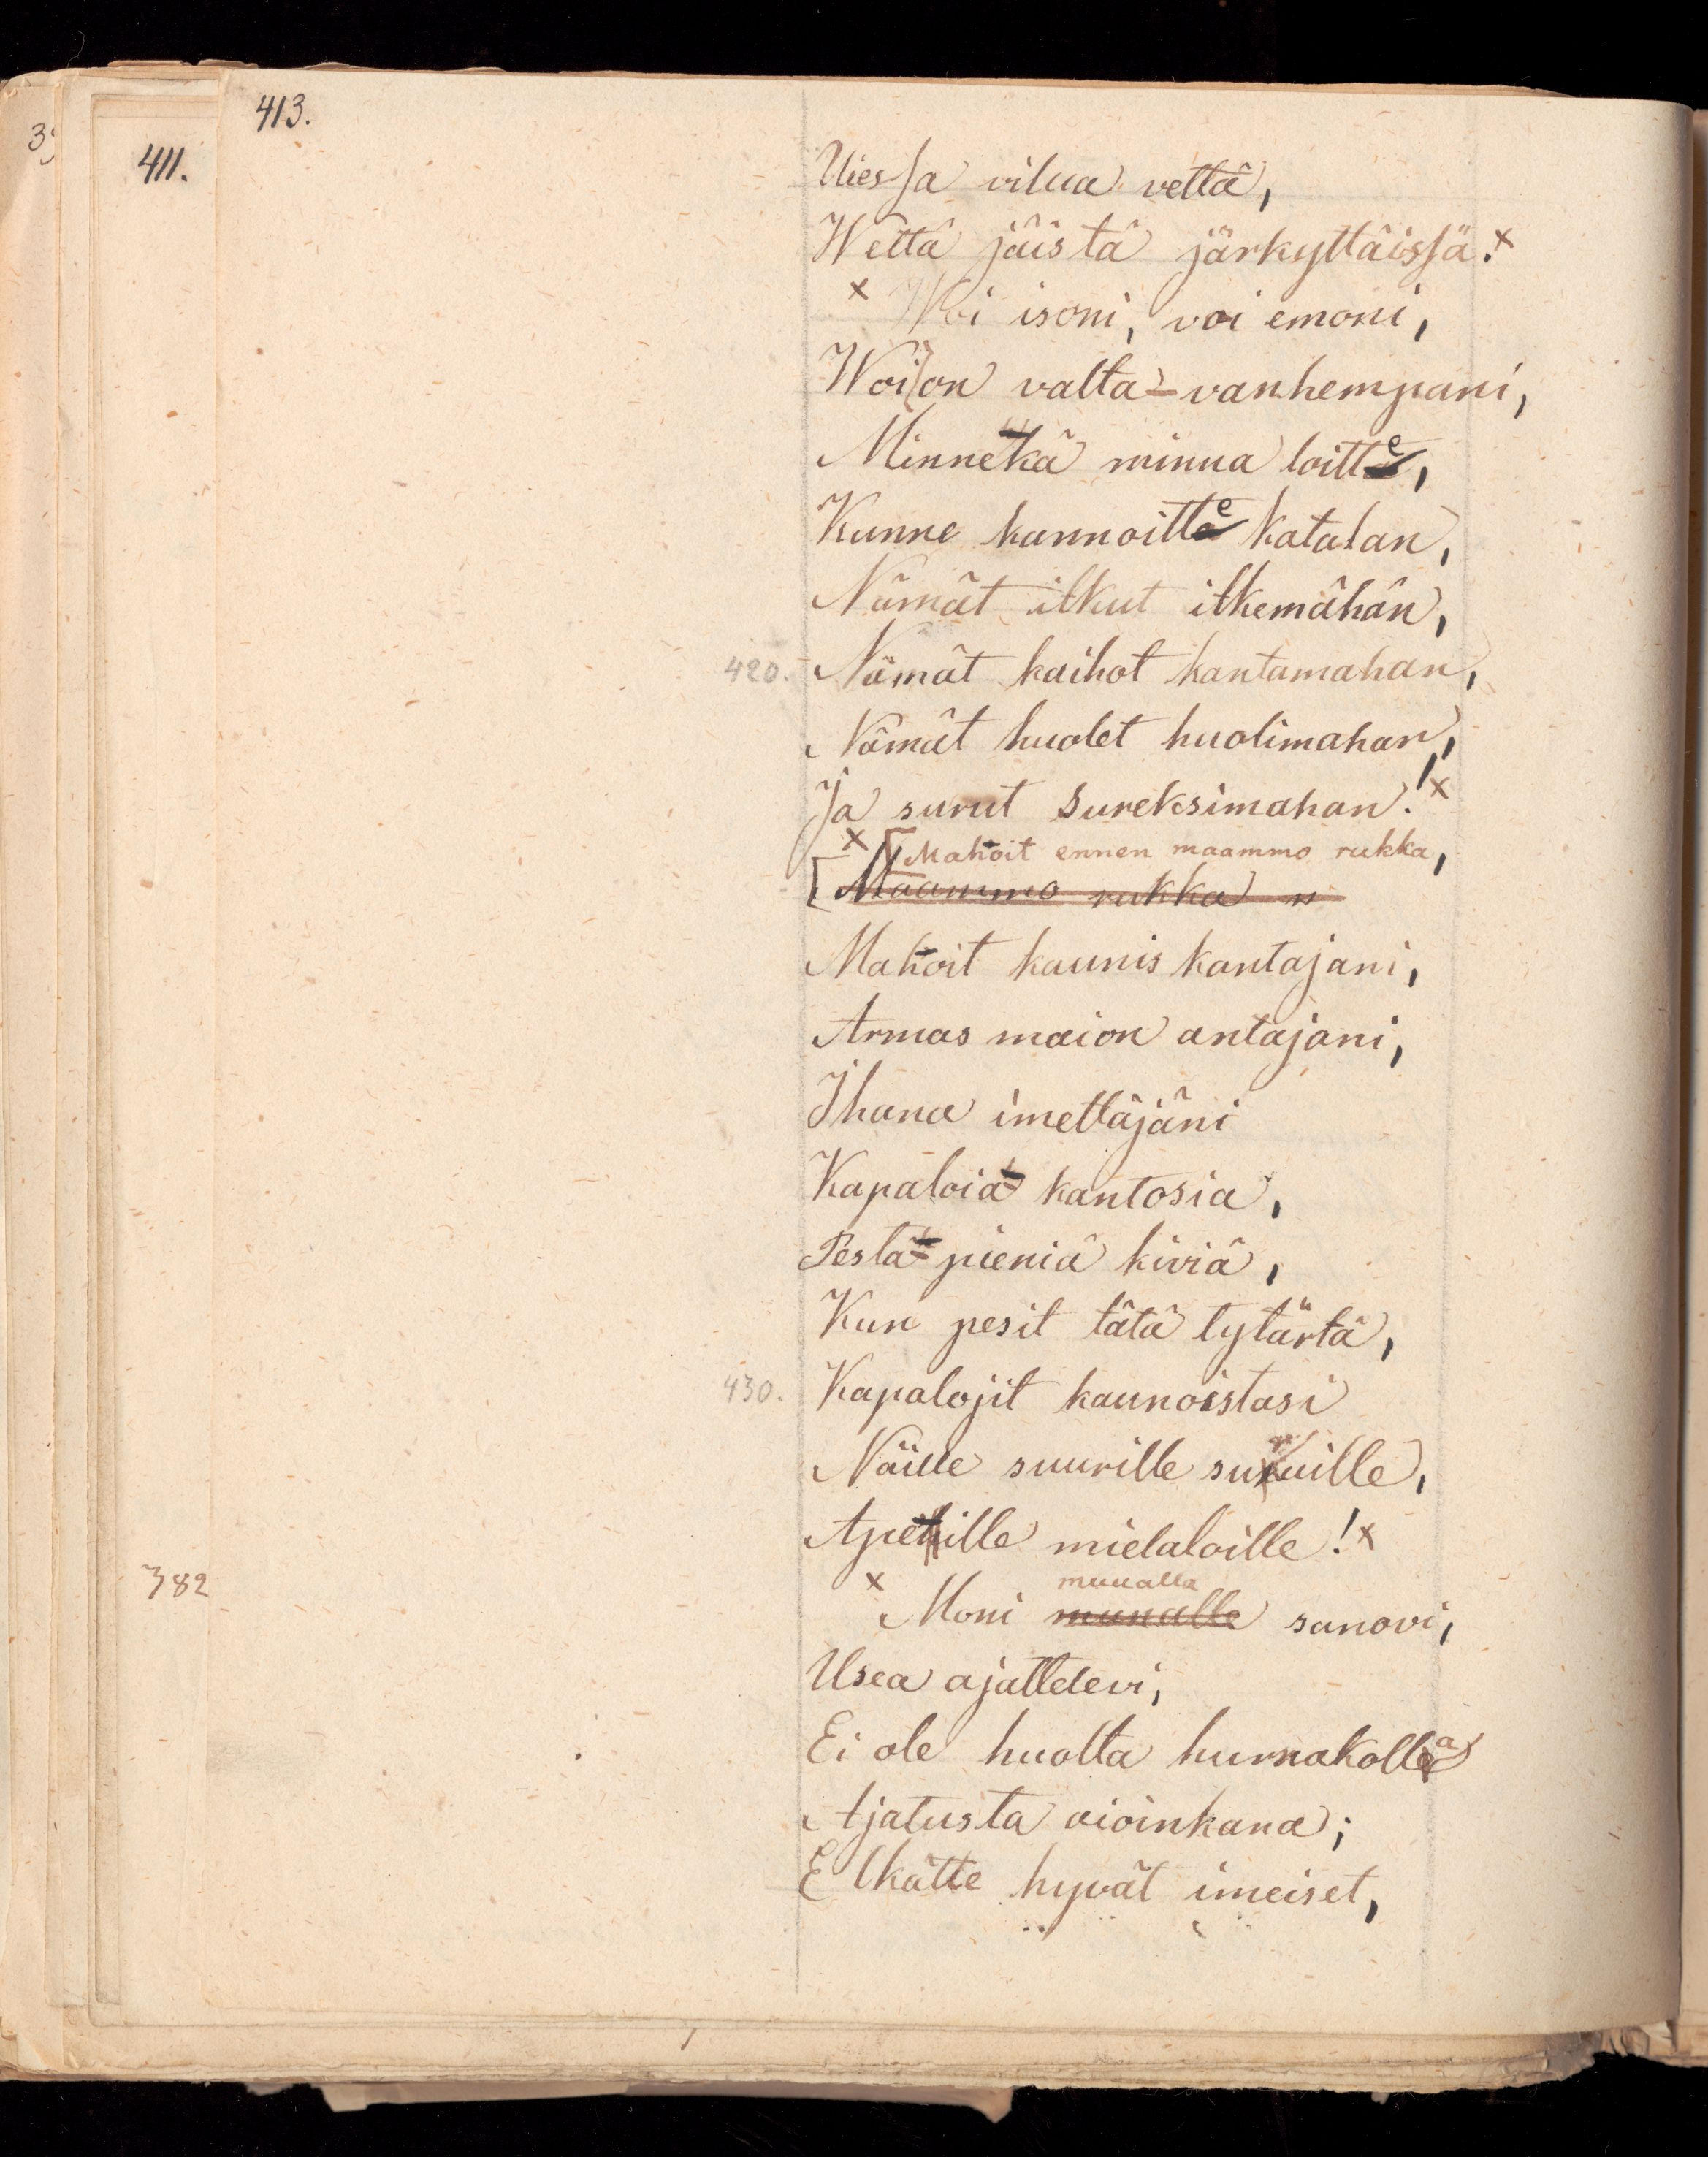 413.
411.
Uiessa vilua vettä,
Wettä jäistä järkyttäissä.x
x Woi isoni, voi emoni,
Woi on valta-vanhempani,
Minnekä minua loitte,
Kunne kannoitte katalan,
Nämät itkut itkemähän,
420. Nämät kaihot kantamahan,
Nämät huolet huolimahan,
Ja surut sureksimahan!x
x [Mahoit ennen maammo rukka,
[Maammo rukka "
Mahoit kaunis kantajani,
Armas maion antajani,
Ihana imettäjäni
Kapaloia kantosia,
Pestä pieniä kiviä,
Kun pesit tätä tytärtä,
430. Kapalojit kaunoistasi
Näille suurille suruille,
Apeille mielaloille!x
muualla
382
x Moni munalle sanovi,
Usea ajattelevi,
Ei ole huolta hurnakolla
Ajatusta aioinkana;
Elkätte hyvät imeiset,